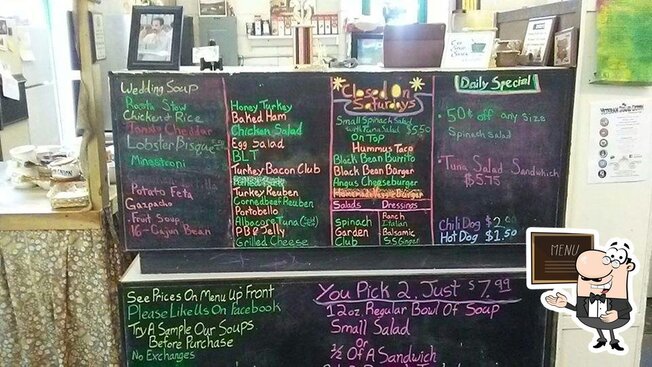 Wedding Soup
Pasta Stew
Chicken & Rice
Tomato Cheddar
Lobster Bisque
Minestroni
Potato Feta
Gazpacho
Fruit Soup
16-Cajun Bean
Honey Turkey
Baked Ham
Chicken Salad
Egg Salad
BLT
Turkey Bacon Club
Turkey Reuben
Cornedbeef Reuben
Portobello
Albacore Tuna
PB & Jelly
Grilled Cheese
Closed On
Saturdays
Small Spinach Salad
with Tuna Salad $5.50
On Top
Hummus Taco
Black Bean Burrito
Black Bean Burger
Angus Cheeseburger
Homemade Veggie Burger
Salads Dressings
Spinach
Garden
Club
Ranch
Italian
Balsamic
SS Ginger
Daily Special
50¢ off any size
Spinach Salad
Tuna Salad Sandwich
$5.75
Chili Dog
Hot Dog $1.50
MENU
See Prices On Menu Up Front
Please Like Us On Facebook
Try A Sample Our Soups
Before Purchase
No Exchanges
You Pick 2, Just $7.99
12 oz. Regular Bowl Of Soup
Small Salad
or
½ Of A Sandwich